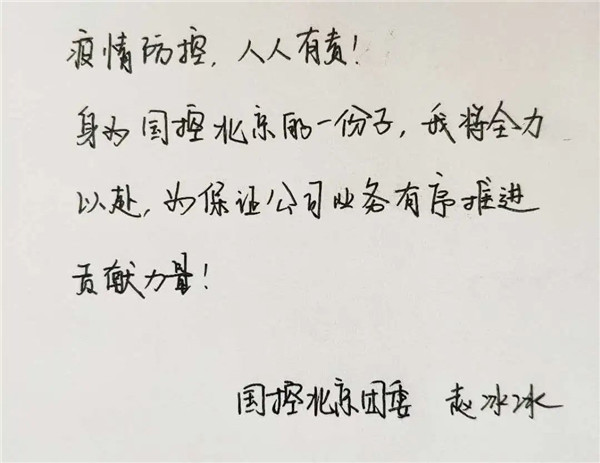 疫情防控，人人有责！
身为国控北京的一份子，我将全力
以赴，为保证公司业务有序推进
贡献力量！
国控北京团委 赵冰冰